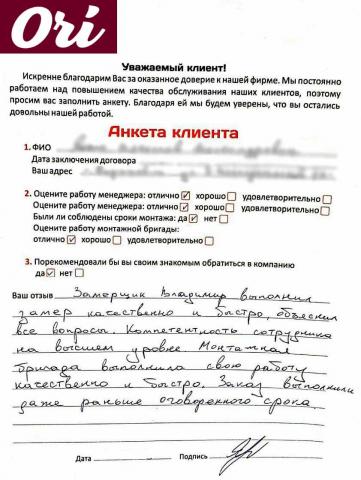 Ori
Уважаемый клиент!
Искренне благодарим Вас за оказанное доверие к нашей фирме. Мы постоянно
работаем над повышением качества обслуживания наших клиентов, поэтому
просим вас заполнить анкету. Благодаря ей мы будем уверены, что вы остались
довольны нашей работой.
Анкета клиента
1. ФИО
Дата заключения договора
Ваш адрес
2. Оцените работу менеджера: отлично хорошо удовлетворительно
Оцените работу менеджера: отлично хорошо удовлетворительно
Были ли соблюдены сроки монтажа: да нет
Оцените работу монтажной бригады:
отлично хорошо удовлетворительно
3. Порекомендовали бы вы своим знакомым обратиться в компанию
да нет
Ваш отзыв Замерщик Владимир выполнил
замер качественно и быстро, объяснил
все вопросы. Компетентность сотрудника
на высшем уровне Монтажная
бригада выполнила свою работу
качественно и быстро. Заказ выполнили
даже раньше оговоренного срока
Дата Подпись